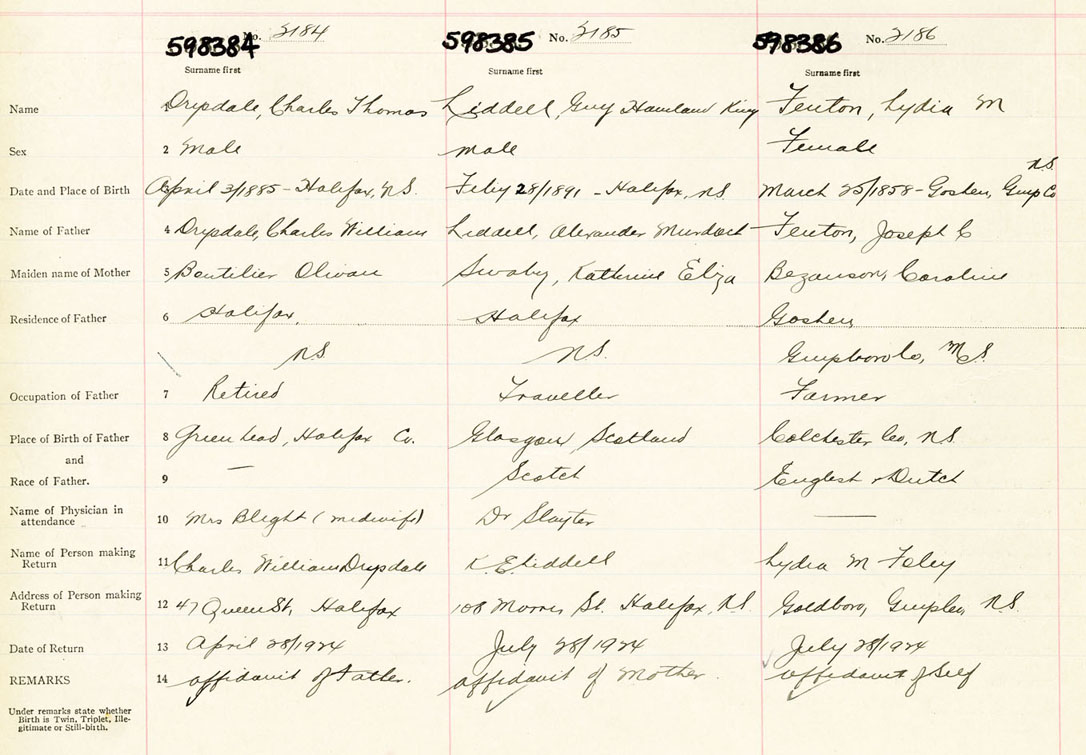 598384 No. 2184 598385 No. 2185 598386 No. 2186
Surname first Surname first Surname first
Name 1 Drysdale, Charles Thomas Liddell, Guy King Fenton, Lydia M
Sex 2 Male male Female
N.S.
Date and Place of Birth 3 April 3/1885 - Halifax, N.S. Feby 28/1891 - Halifax, N.S. March 25/1858 - Goshen, Guys Co
Name of Father 4 Drysdale, Charles William Liddell, Alexander Murdoch Fenton, Joseph C
Maiden name of Mother 5 Boutilier Swaby, Katherine Eliza Bezanson, Caroline
Residence of Father 6 Halifax, Halifax Goshen
NS N.S. Guysboro Co, N.S.
Occupation of Father 7 Retired Traveller Farmer
Place of Birth of Father 8 Green Head, Halifax Co. Glasgow, Scotland Colchester Co, N.S.
and
Race of Father. 9 — Scotch English & Dutch
Name of Physician in
attendance 10 Mrs Blight (midwife) Dr Slayter ——
Name of Person making
Return 11 Charles William Drysdale K. E. Liddell Lydia M
Address of Person making
Return 12 47 Queen St, Halifax 108 Morris St. Halifax, N.S. Goldboro, N.S.
Date of Return 13 April 28/1924 July 28/1924 July 28/1924
REMARKS 14 affidavit of Father. affidavit of Mother. affidavit of Self
Under remarks state whether
Birth is Twin, Triplet, Ille-
gitimate or Still-birth.